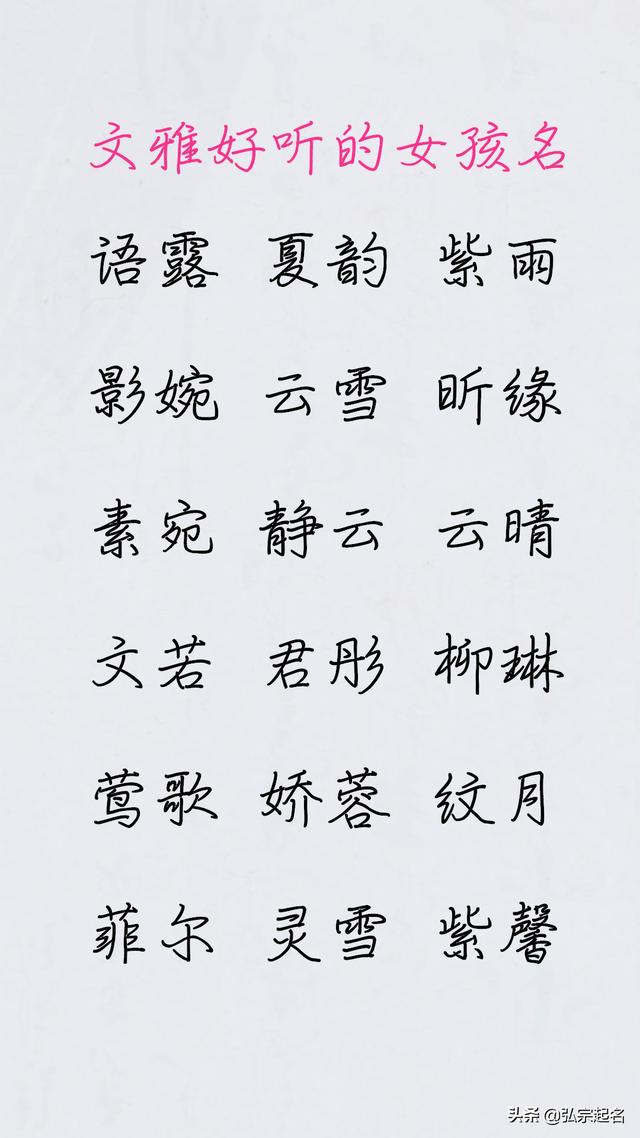 文雅好听的女孩名
语露 夏韵 紫雨
影婉 云雪 昕缘
素宛 静云 云晴
文若 君彤 柳琳
莺歌 娇蓉 纹月
菲尔 灵雪 紫馨
头条 @弘宗起名